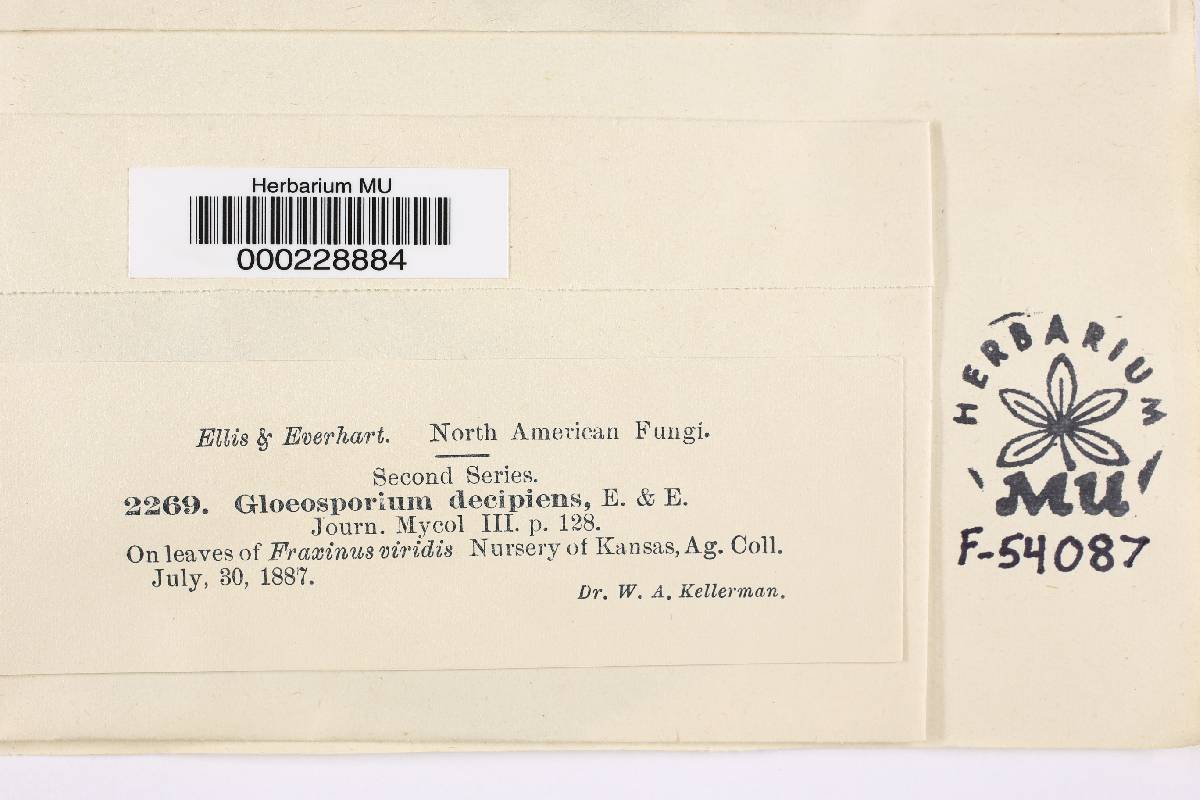 Herbarium MU
000228884
Ellis & Everhart. North American Fungi.
Second Series.
2269. Gloeosporium decipiens, E. & E.
Journ. Mycol III. p. 128.
On leaves of Fraxinus viridis Nursery of Kansas, Ag. Coll.
July, 30, 1887.
Dr. W. A. Kellerman.
HERBARIUM
MU
F-54087